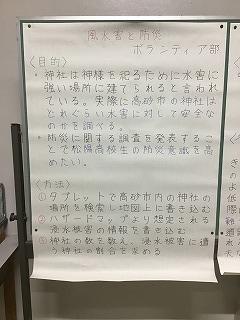 風水害と防災
ボランティア部
〈目的〉
・神社は神様を祀るために水害に
強い場所に建てられると言われ
ている。実際に高砂市の神社は
どれぐらい水害に対して安全な
のかを調べる。
・防災に関する調査を発表するこ
とで松陽高校生の防災意識を高
めたい。
〈方法〉
①タブレットで高砂市内の神社の
場所を検索し地図上に書き込む
②ハザードマップより想定される
浸水被害の情報を書き込む
③神社の数を数え、浸水被害に遭
う神社の割合を求める